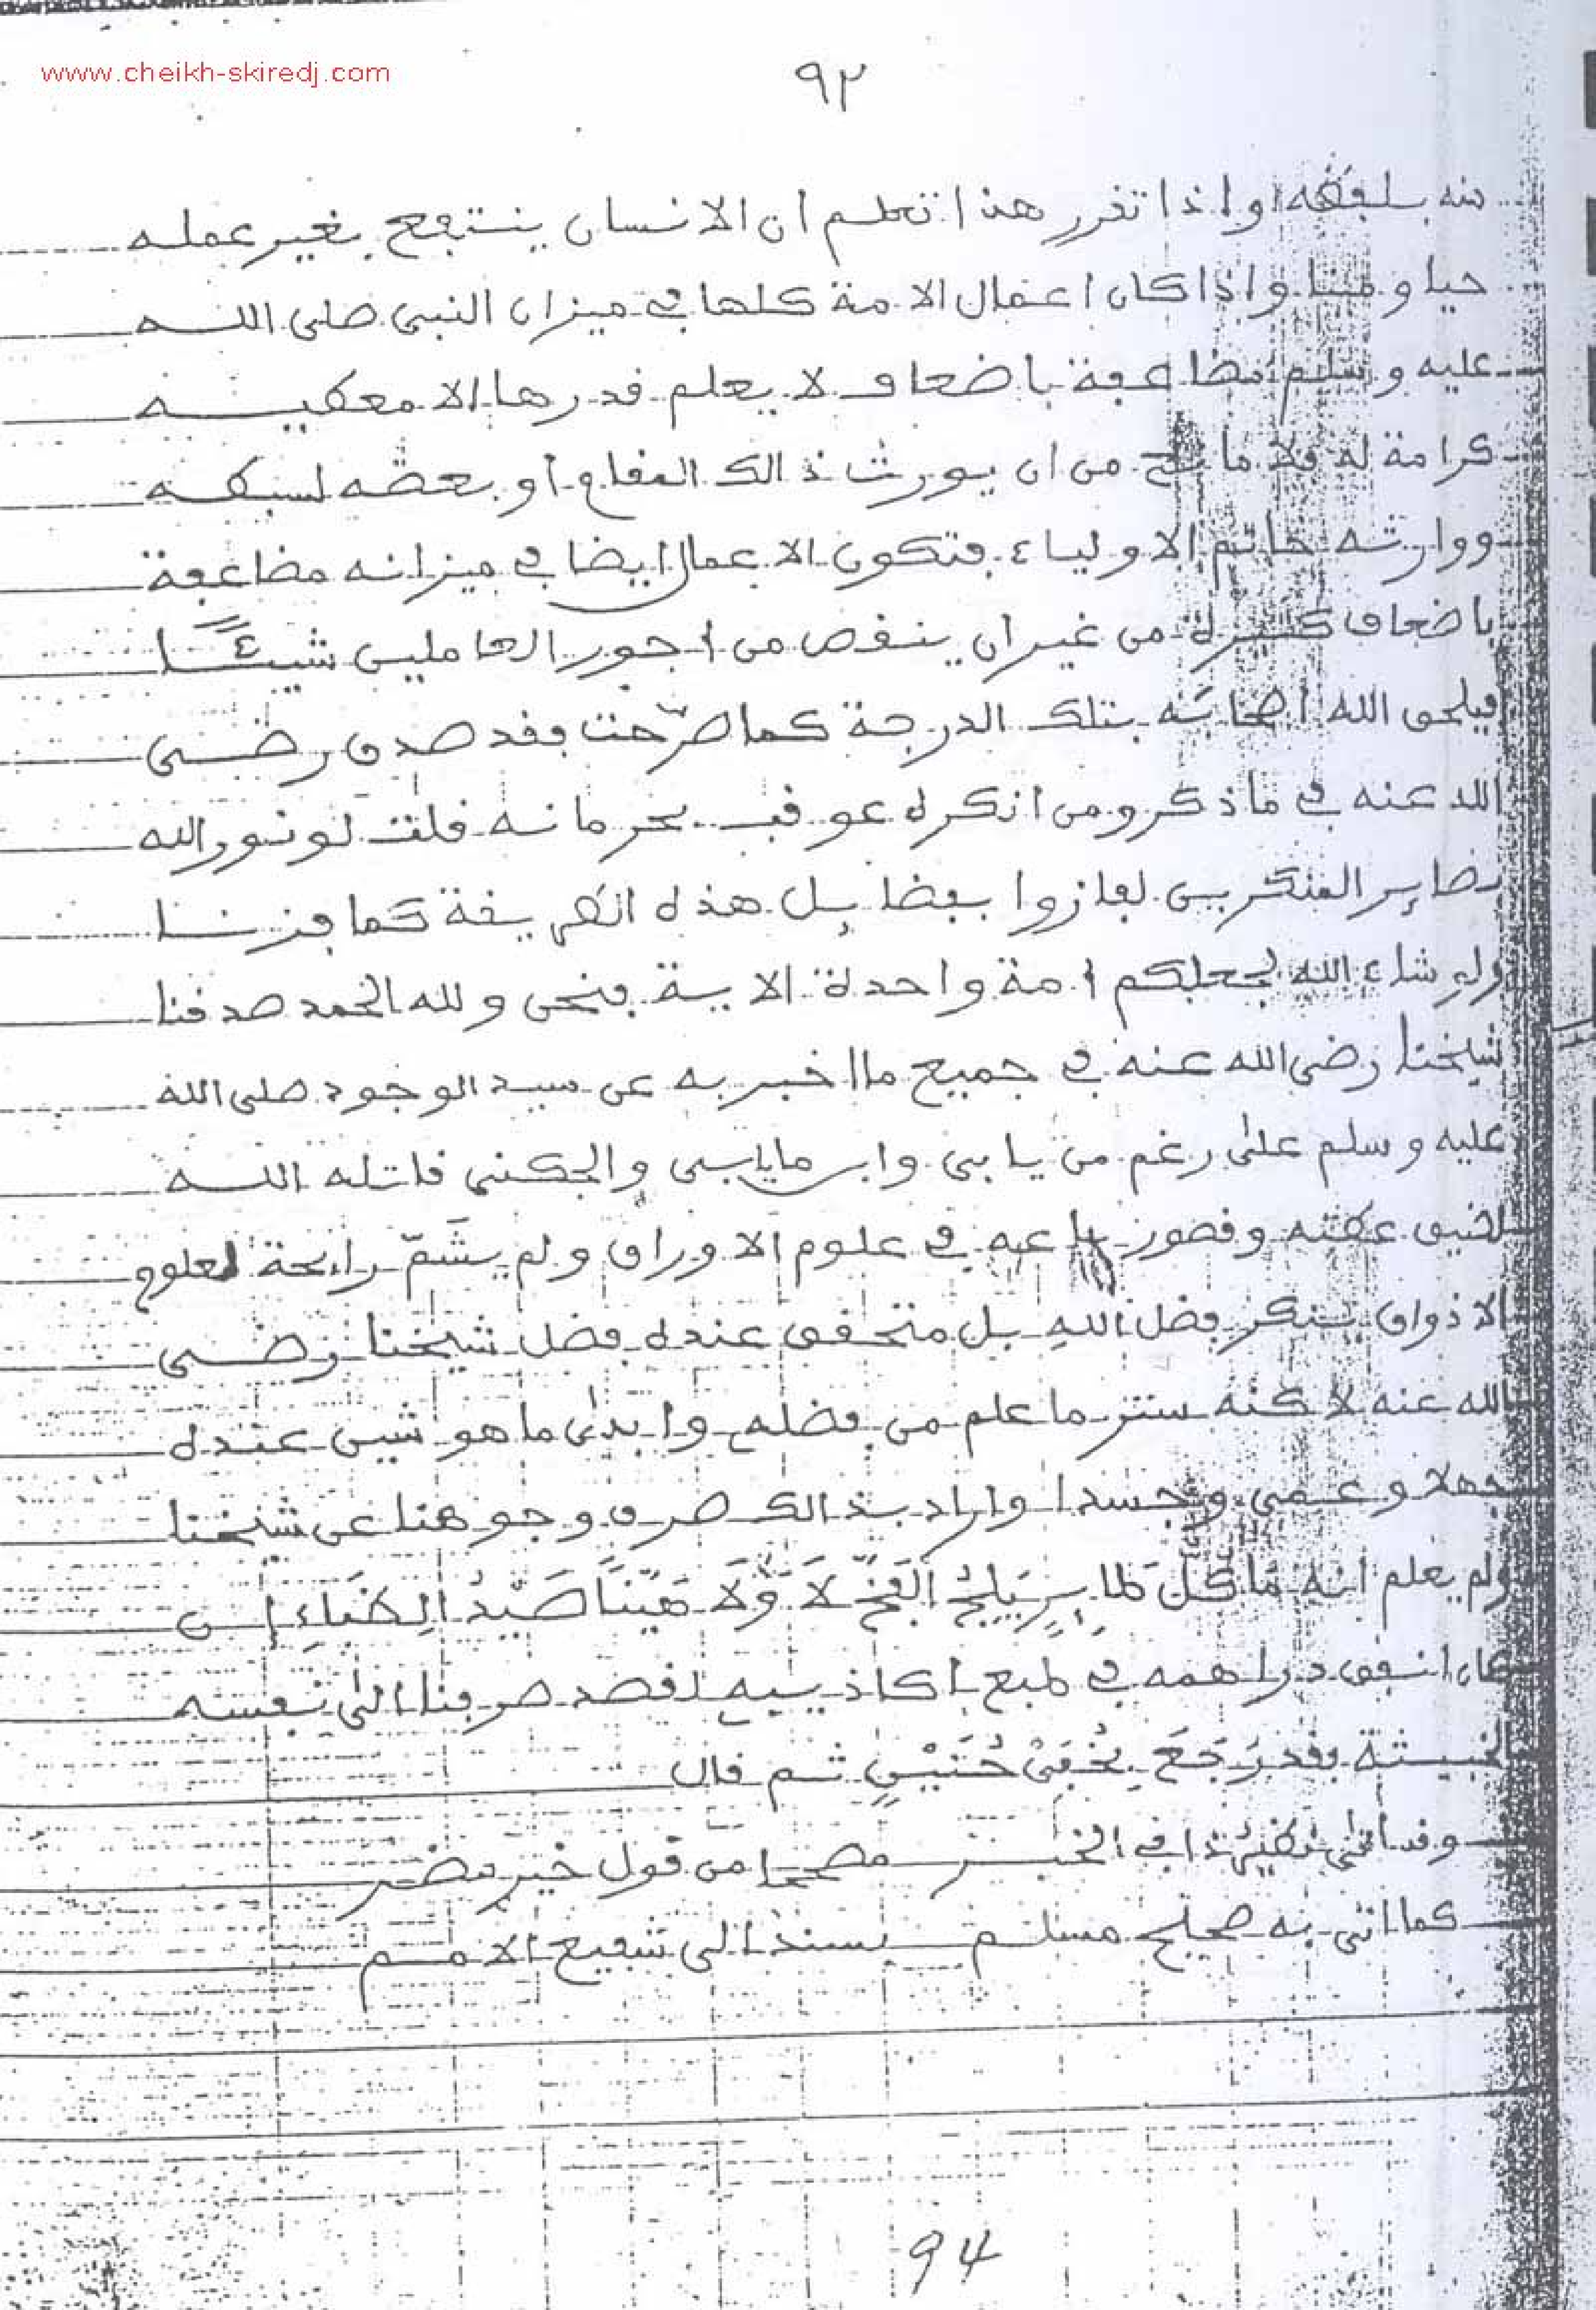 www.cheikh-skiredj.com
٩٢
منه بلفظه واذا تقرر هذا تعلم ان الانسان ينتفع بغير عمله
حيا وميتا واذا كان اعمال الامة كلها في ميزان النبي صلى الله
عليه وسلم مضاعفة باضعاف لا يعلم قدرها الا معطيه
كرامة له فلا مانع من ان يورث ذالك المقام او بعضه لسبطه
ووارثه خاتم الاولياء فتكون الاعمال ايضا في ميزانه مضاعفة
باضعاف كثيرة من غير ان ينقص من اجور العاملين شيئًا
فيلحق الله اصحابه بتلك الدرجة كما صرّحت فقد صدق رضي
الله عنه في ما ذكر ومن انكره عوقب بحرمانه قلت لو نور الله
بصاير المنكرين لفازوا بفضايل هذه الطريقة كما فزنا
ولو شاء الله لجعلكم امة واحدة الاية فنحن ولله الحمد صدقنا
شيخنا رضي الله عنه في جميع ما اخبر به عن سيد الوجود صلى الله
عليه وسلم على رغم من يابى وابن مايابى والجكني قاتله الله
لضيق عطنه وقصور باعه في علوم الاوراق ولم يشمّ رايحة لعلوم
الاذواق ينكر فضل الله بل متحقق عنده فضل شيخنا رضي
الله عنه لاكنه ستر ما علم من فضله وابدى ما هو شين عنده
جهلا وعمى وحسدا واراد بذالك صرف وجوهنا عن شيخنا
ولم يعلم انه مَا كُلّ طَايِرٍ يَلِجُ الْفَخَّ لاَ وَلاَ هَيِّنًا صَيْدُ الظِبَاءِ ان
كان انفق دراهمه في طبع اكاذيبه لقصد صرفنا الى نفسه
الخبيثة فقد رَجَعَ بِخُفَّيْ حُنَيْنٍ ثم قال
وقد اتى نظير ذا في الخبر مصححا من قول خير مضر
كما اتى به صحيح مسلم بسند الى شفيع الامم
94